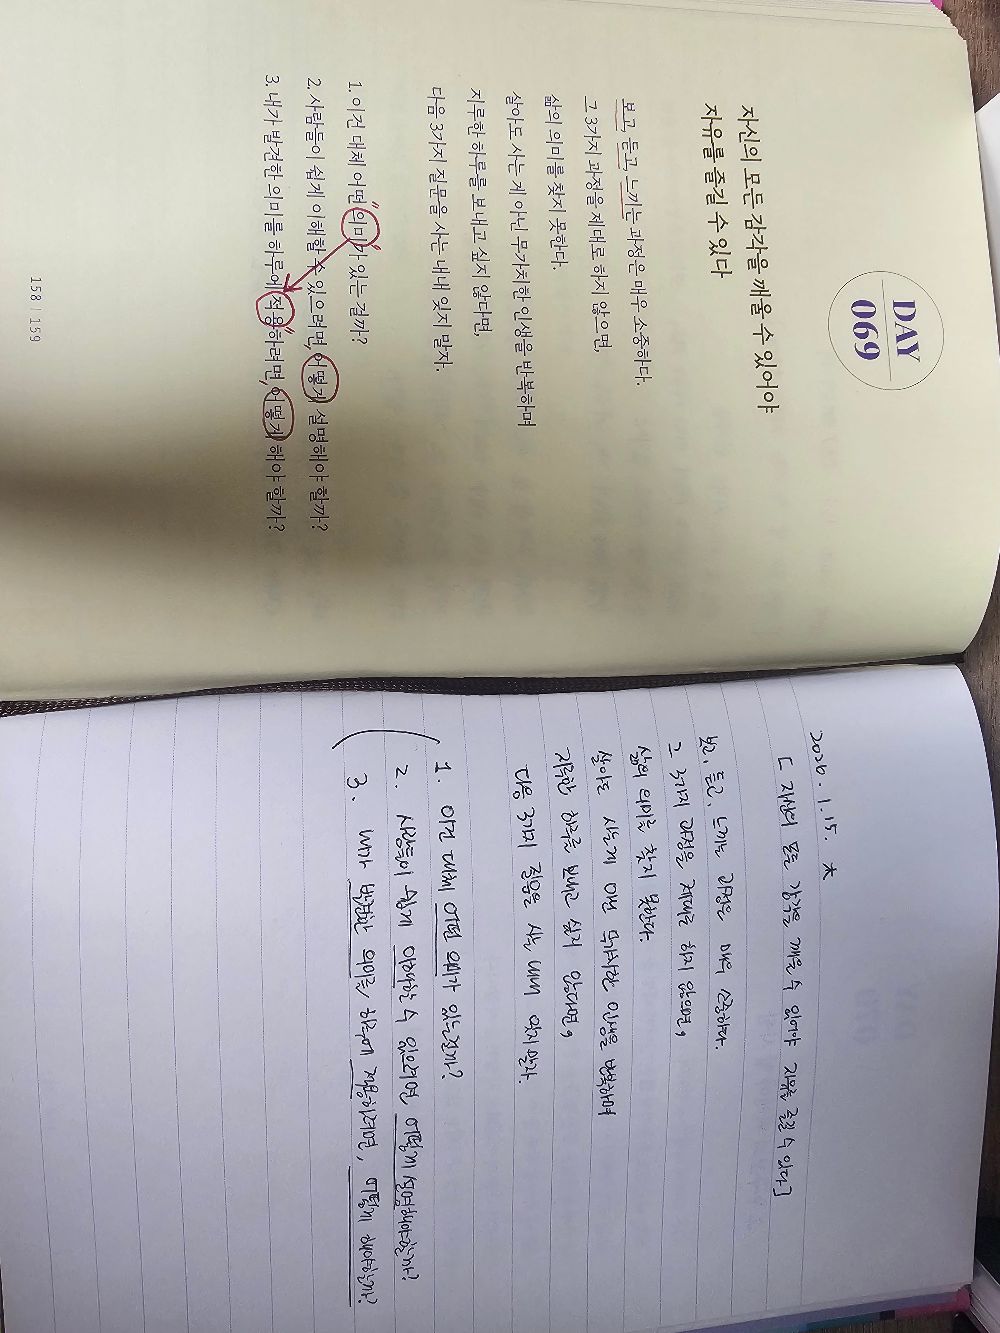 DAY
069
자신의 모든 감각을 깨울 수 있어야
자유를 즐길 수 있다
보고, 듣고, 느끼는 과정은 매우 소중하다.
그 3가지 과정을 제대로 하지 않으면,
삶의 의미를 찾지 못한다.
살아도 사는 게 아닌 무가치한 인생을 반복하며
지루한 하루를 보내고 싶지 않다면,
다음 3가지 질문을 사는 내내 잊지 말자.
1. 이건 대체 어떤 "의미"가 있는 걸까?
2. 사람들이 쉽게 이해할 수 있으려면, 어떻게 설명해야 할까?
3. 내가 발견한 의미를 하루에 "적용"하려면, 어떻게 해야 할까?
158 | 159
2026. 1. 15. 木
[ 자신의 모든 감각을 깨울 수 있어야 자유를 즐길 수 있다]
보고, 듣고, 느끼는 과정은 매우 소중하다.
그 3가지 과정을 제대로 하지 않으면,
삶의 의미를 찾지 못한다.
살아도 사는게 아닌 무가치한 인생을 반복하며
지루한 하루를 보내고 싶지 않다면,
다음 3가지 질문을 사는 내내 잊지 말자.
1. 이건 대체 어떤 의미가 있는걸까?
2. 사람들이 쉽게 이해할 수 있으려면 어떻게 설명해야할까?
3. 내가 발견한 의미를 하루에 적용하려면, 어떻게 해야할까?